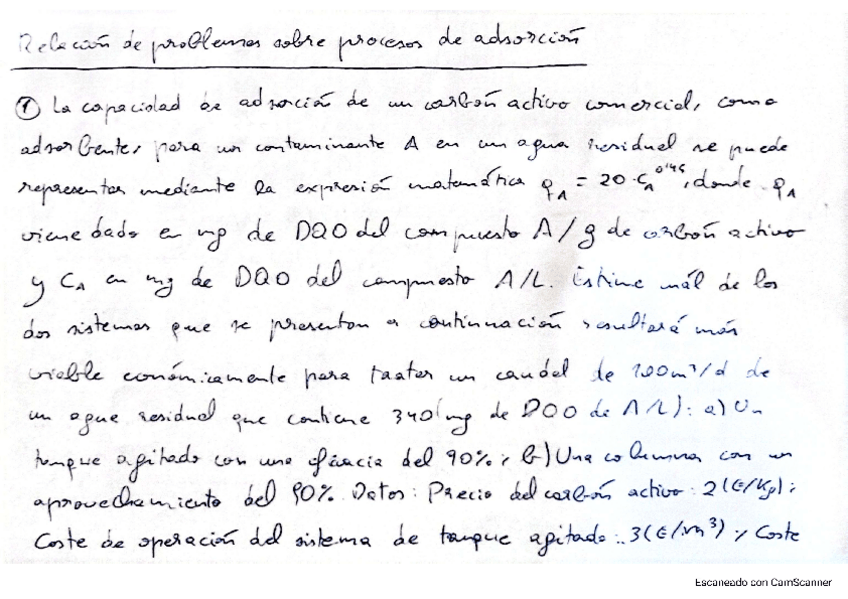 Relación de problemas sobre procesos de adsorción
① La capacidad de adsorción de un carbón activo comercial, como
adsorbente, para un contaminante A en un agua residual se puede
representar mediante la expresión matemática q_A = 20·C_A^0'45, donde q_A
viene dado en mg de DQO del compuesto A/g de carbón activo
y C_A en mg de DQO del compuesto A/L. Estime cuál de los
dos sistemas que se presentan a continuación resultará más
viable económicamente para tratar un caudal de 100 m³/d de
un agua residual que contiene 340 (mg de DQO de A/L): a) Un
tanque agitado con una eficacia del 90%; b) Una columna con un
aprovechamiento del 90%. Datos: Precio del carbón activo: 2 (€/Kg);
Coste de operación del sistema de tanque agitado: 3 (€/m³); Coste
Escaneado con CamScanner